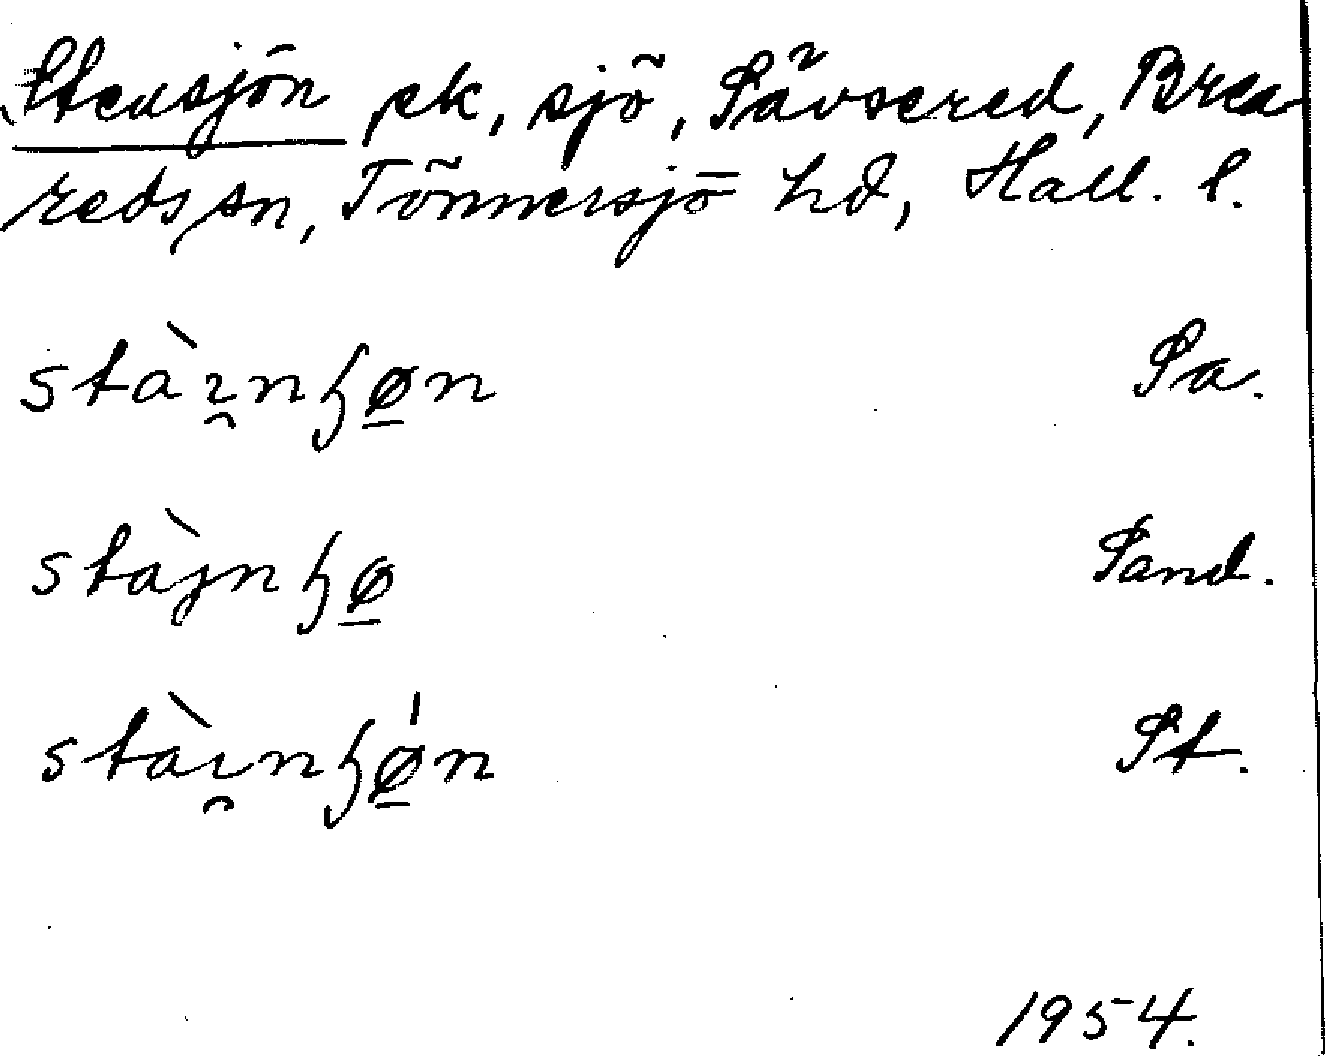 Stensjön, ek, sjö, Sävsered, Brea-
reds sn, Tönnersjö hd, Hall. l.
stàı̯nɧø̱n Sa.
stàjnɧø̱ Sand.
stàı̯nɧǿ̱n St.
1954.